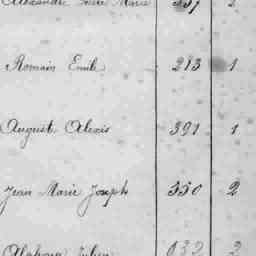 Alexandre Marie 337 2
Romain Emile 213 1
Auguste Alexis 391 1
Jean Marie Joseph 550 2
Julien 032 2